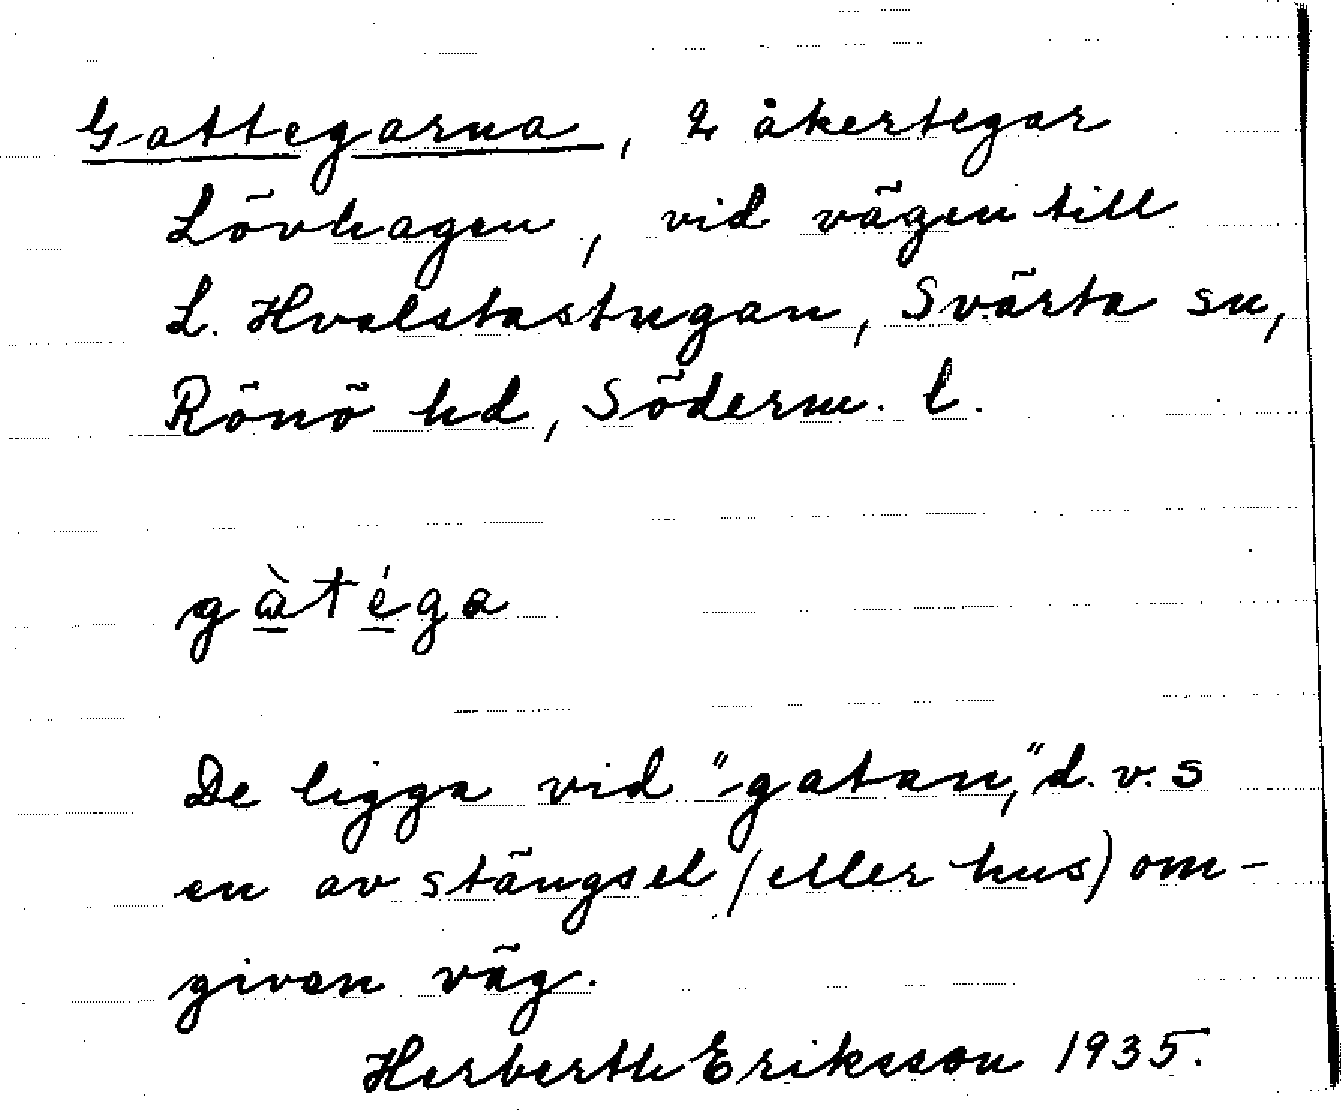 Gattegarna, 2 åkertegar
Lövhagen, vid vägen till
L. Hvalstastugan, Svärta sn,
Rönö hd, Söderm. l.
gàtéga
De ligga vid "gatan," d.v.s
en av stängsel (eller hus) om-
given väg.
Herberth Eriksson 1935.